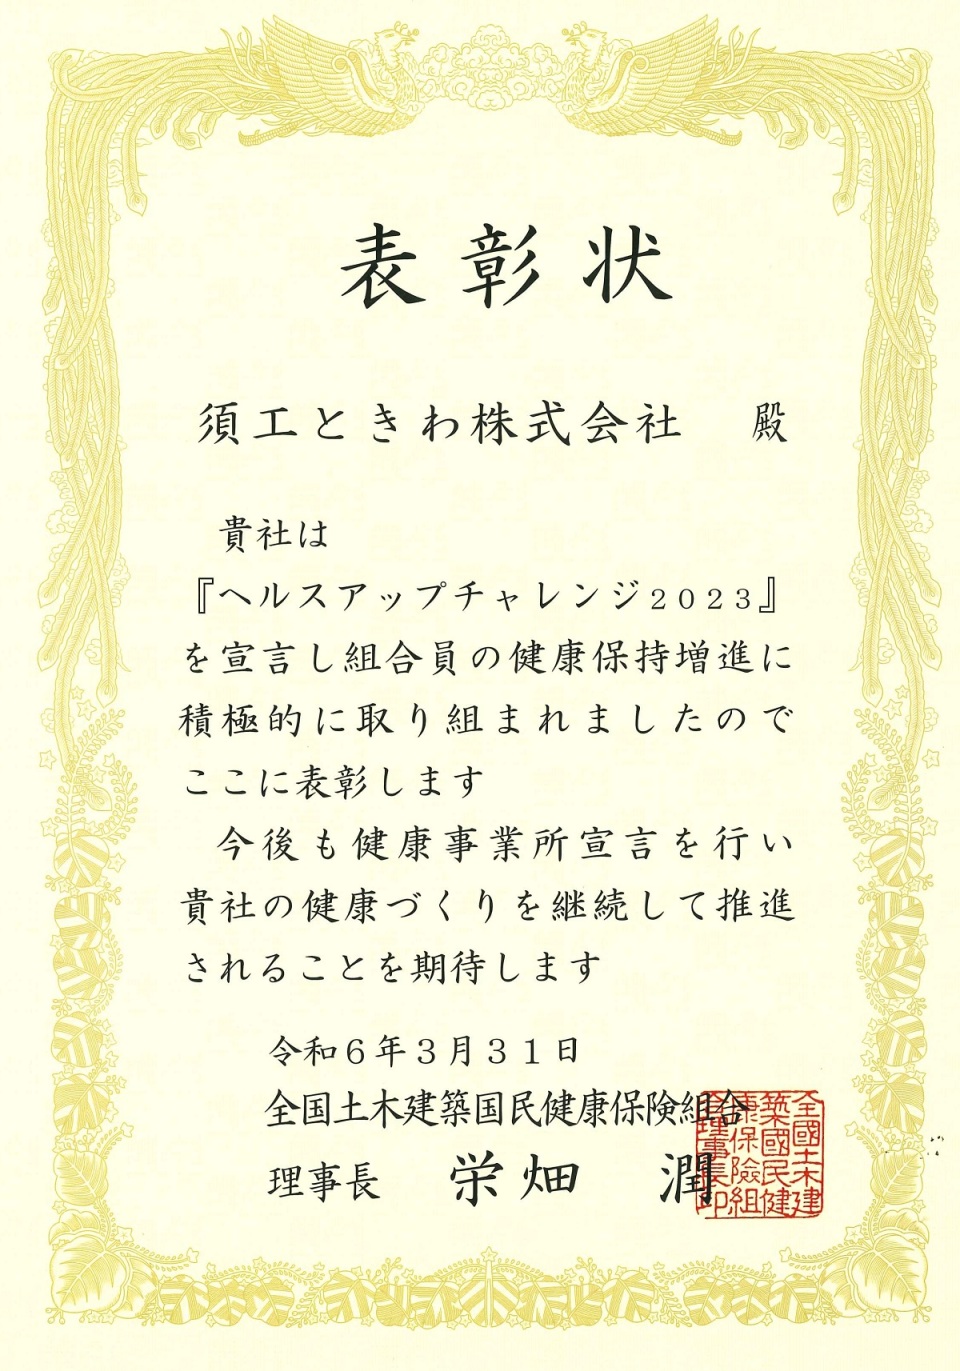 表彰状
須工ときわ株式会社　殿
貴社は
『ヘルスアップチャレンジ２０２３』
を宣言し組合員の健康保持増進に
積極的に取り組まれましたので
ここに表彰します
今後も健康事業所宣言を行い
貴社の健康づくりを継続して推進
されることを期待します
令和６年３月３１日
全国土木建築国民健康保険組合
理事長　栄畑　潤
全國土木建
築國民健
康保險組
合理事長印